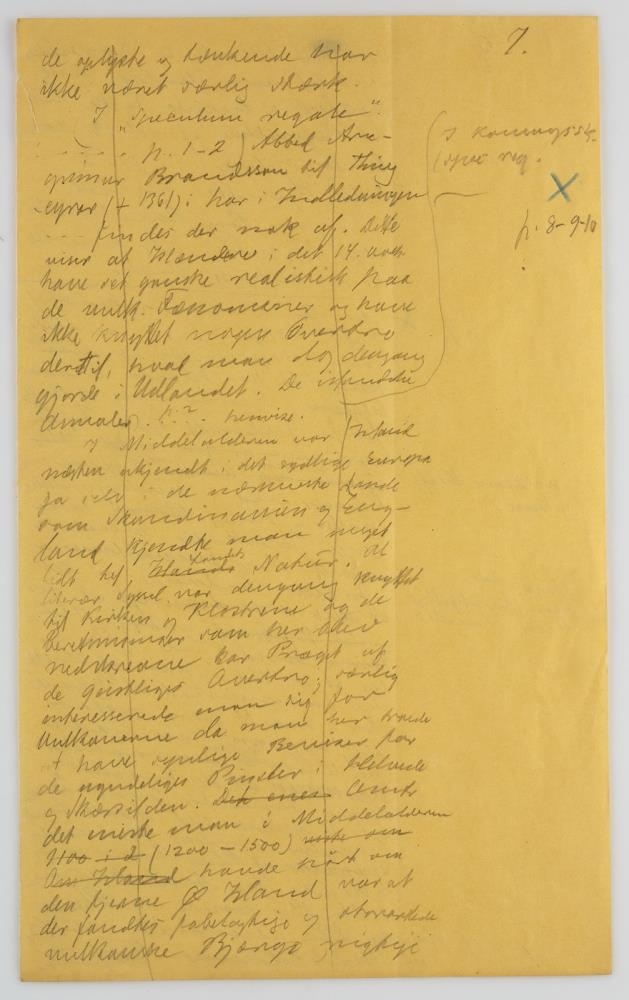 7.
de oplyste og tænkende har
ikke været særlig stærk.
I "Speculum regale".
p. 1-2) Abbed Arn-
grimur Brandsson til Thing
eyrar († 1361) i har i Indledningen
findes der nok af. Dette
viser at Islændere i det 14. aarh
have set ganske realistisk paa
de vulk. Fænomener og have
ikke knyttet nogen Overtro
dertil, hvad man dog dengang
gjorde i Udlandet. De islandske
Annaler. !? henvise.
I Middelalderen var Island
næsten ukjendt i det sydlige Europa
ja selv i de nærmeste Lande
som Skandinavien og Eng-
land kjendte man meget
lidt til Islands Landets Natur. Al
literær Syssel var dengang knyttet
til Kirken og Klostrene og de
Beretninger som her blev
nedskrevne bar Præget af
de geistliges Overtro; særlig
interesserede man sig for
Vulkanerne da man her troede
at have synlige Beviser for
de ugudeliges Pinsler i Helvede
og Skærsilden. Det eneste Omtr
det meste man i Middelalderen
1100 i d (1200-1500) vidste om
Om Island havde hört om
den fjerne Ø Island var at
der fandtes fabelagtige og
vulkanske Bjærge, rigtige
I Konungssk.
(spec reg.
X
p. 8-9-10